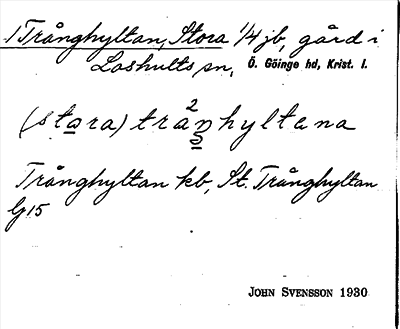 1 Trånghyltan, Stora 1/4 jb, gård i
Loshults sn, Ö. Göinge hd, Krist. l.
2
(stora) trånhyltena
Trånghyltan kb, St. Trånghyltan
Gj 15
JOHN SVENSSON 1930